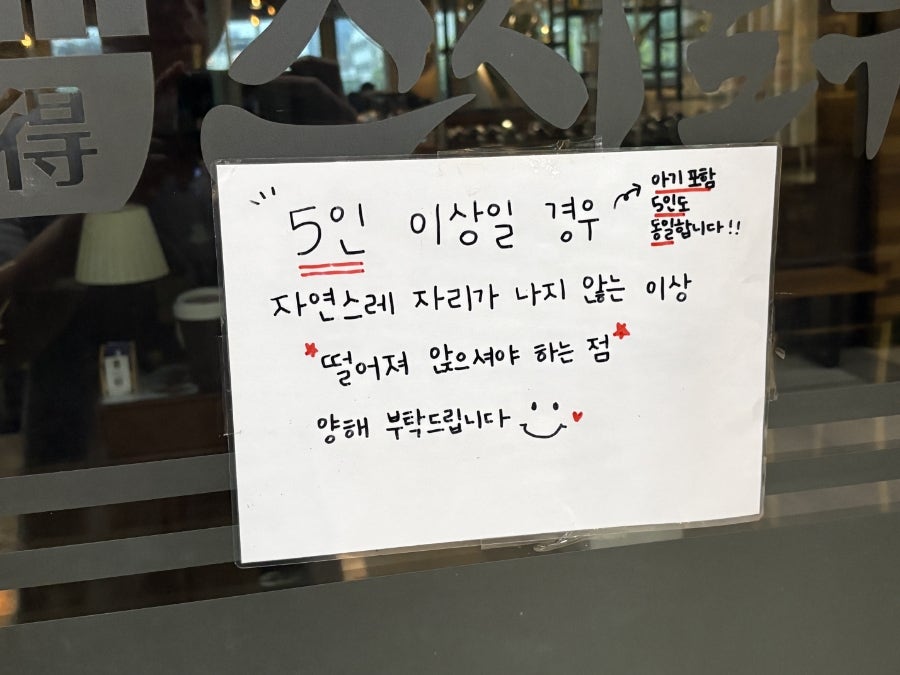 得
5인 이상일 경우
아기 포함
5인도
동일합니다!!
자연스레 자리가 나지 않는 이상
*떨어져 앉으셔야 하는 점*
양해 부탁드립니다